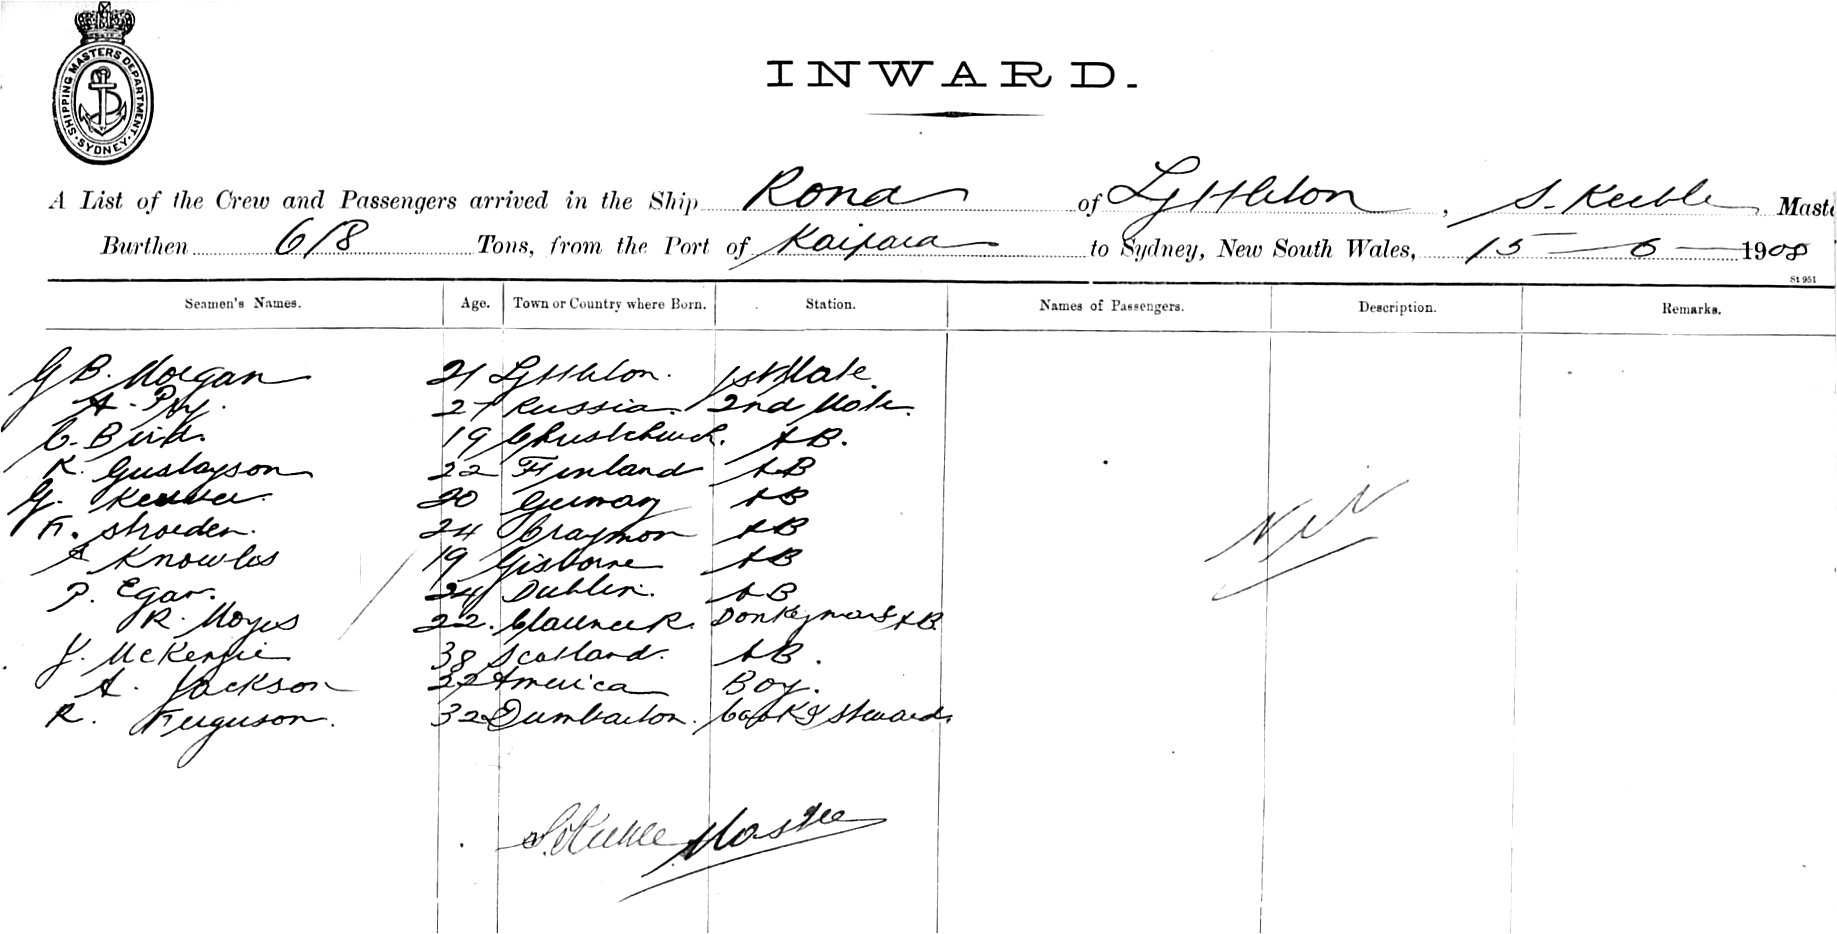 SHIPPING MASTERS DEPARTMENT. SYDNEY.
INWARD.
A List of the Crew and Passengers arrived in the Ship Rona of Lyttleton, S. Keeble Maste
Burthen 618 Tons, from the Port of Kaipara to Sydney, New South Wales, 15 – 6 – 1908
St 951
Seamen's Names. Age. Town or Country where Born. Station. Names of Passengers. Description. Remarks.
G B. Morgan 21 Lyttleton. 1st Mate.
A. 27 Russia. 2nd Mate.
C. Bird. 19 Christchurch. AB.
K. Gustavson 22 Finland AB
G. 20 Germany AB
F. Stroeden. 24 AB
A Knowles 19 Gisborne AB
P. Egan. 24 Dublin. AB
R. Moyes 22. Clarence R. Donkeyman & AB
J. McKenzie 38 Scotland. AB.
A. Jackson 22 America Boy.
R. Ferguson. 32 Dumbarton. Cook & Steward.
Nil
S. Keeble Master